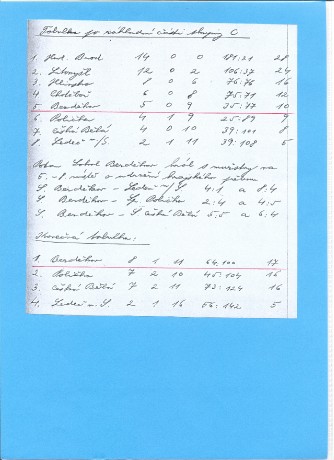 Tabulka po základní části skupiny C
1. Havl. Brod 14 0 0 181:21 28
2. Litomyšl 12 0 2 106:37 24
3. Hlinsko 8 0 6 76:76 16
4. Chotěboř 6 0 8 75:71 12
5. Bezděkov 5 0 9 35:77 10
6. Polička 4 1 9 25:89 9
7. Česká Bělá 4 0 10 39:101 8
8. Ledeč n/S. 2 1 11 39:108 5
Sokol Bezděkov hrál s mužstvy na
5. - 8. místě o udržení krajského přeboru
S. Bezděkov - Ledeč n/S 4:1 a 8:4
S. Bezděkov - Sp. Polička 2:4 a 4:5
S. Bezděkov - S Česká Bělá 5:5 a 6:4
Konečná tabulka:
1. Bezděkov 8 1 11 64:100 17
2. Polička 7 2 10 45:104 16
3. Česká Bělá 7 2 11 73:124 16
4. Ledeč n. S. 2 1 16 56:142 5